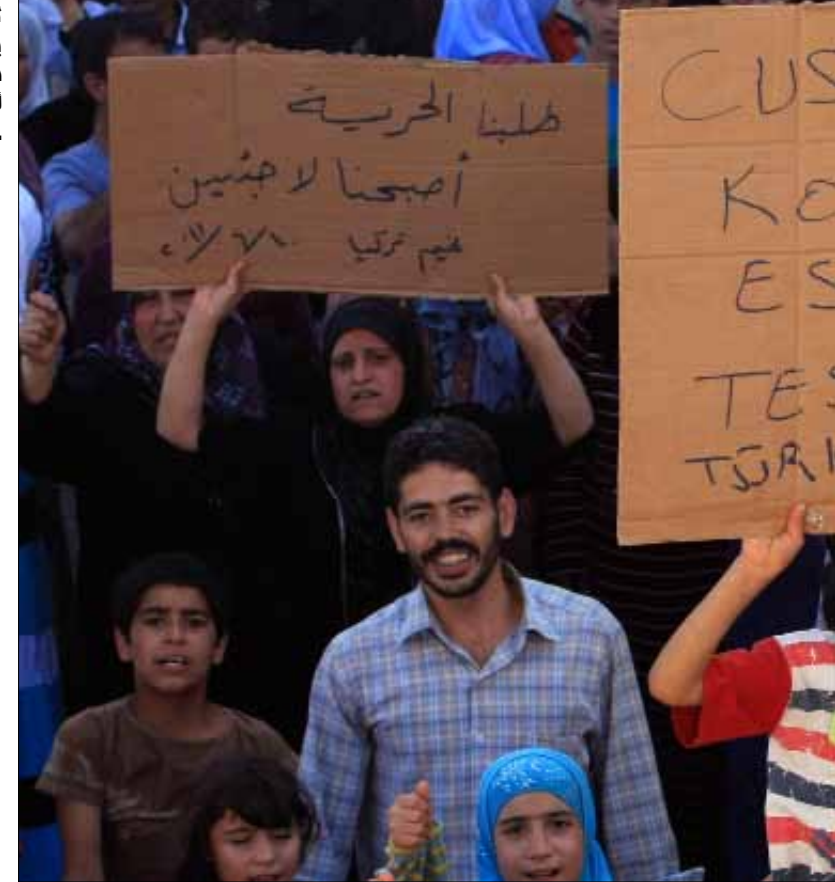 طلبنا الحرية
أصبحنا لاجئين
تركيا
CUS
KE
ES
TES
TÜRK